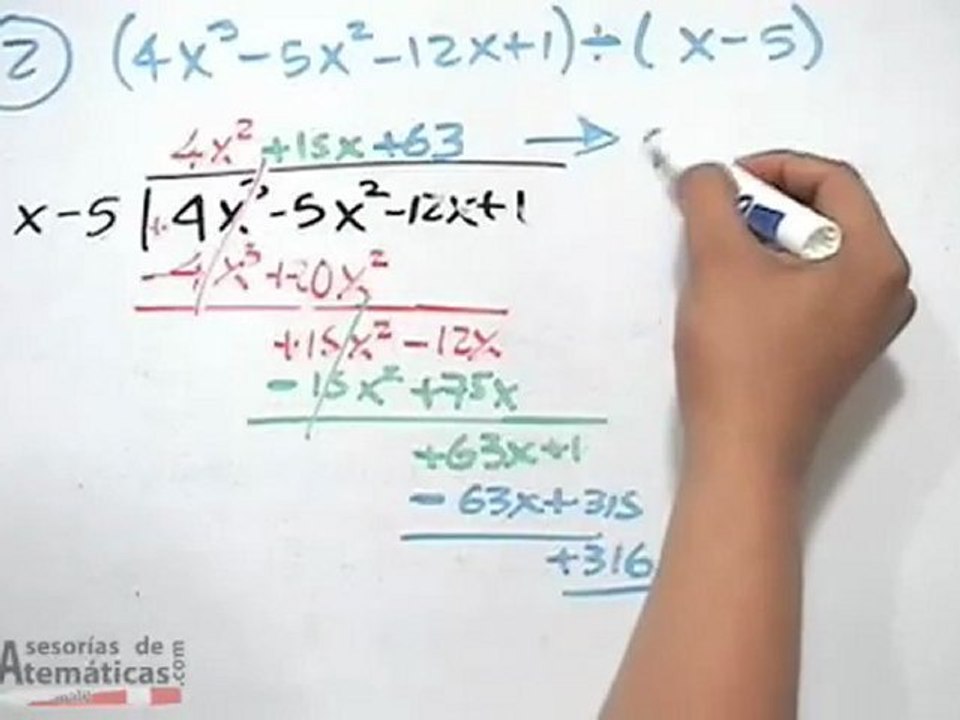 2 (4x³-5x²-12x+1)÷(x-5)
4x²+15x+63 →
x-5 4x³-5x²-12x+1
-4x³+20x²
+15x²-12x
-15x²+75x
+63x+1
-63x+315
+316
Asesorías de
Atemáticas.com